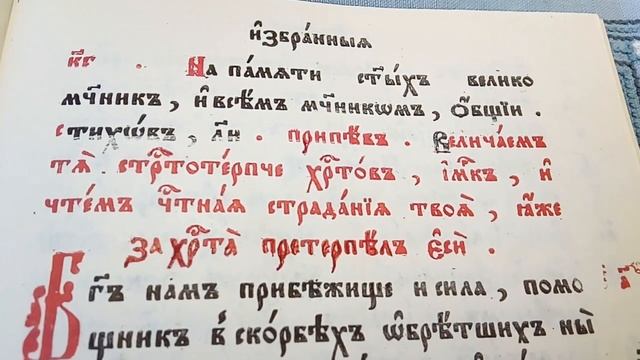 и҆збра́нныѧ
к҃г . На па́мѧти ст҃ы́хъ велико
мч҃никъ, и҆ всѣ́мъ мч҃никѡмъ, ѻ҆́бщїи.
стихѡ́въ, л҃и. припѣ́въ. Велича́емъ
тѧ̀ стрⷭ҇тоте́рпче хрⷭ҇то́въ, і҆мⷬ҇къ, и҆
чте́мъ чⷭ҇тна́ѧ страда́нїѧ твоѧ̀, ꙗ҆́же
за хрⷭ҇та̀ претерпѣ́лъ є҆сѝ.
Бг҃ъ намъ прибѣ́жище и сила, помо
щникъ в̾ ско́рбѣхъ ѡ҆брѣ́тшихъ ны̀